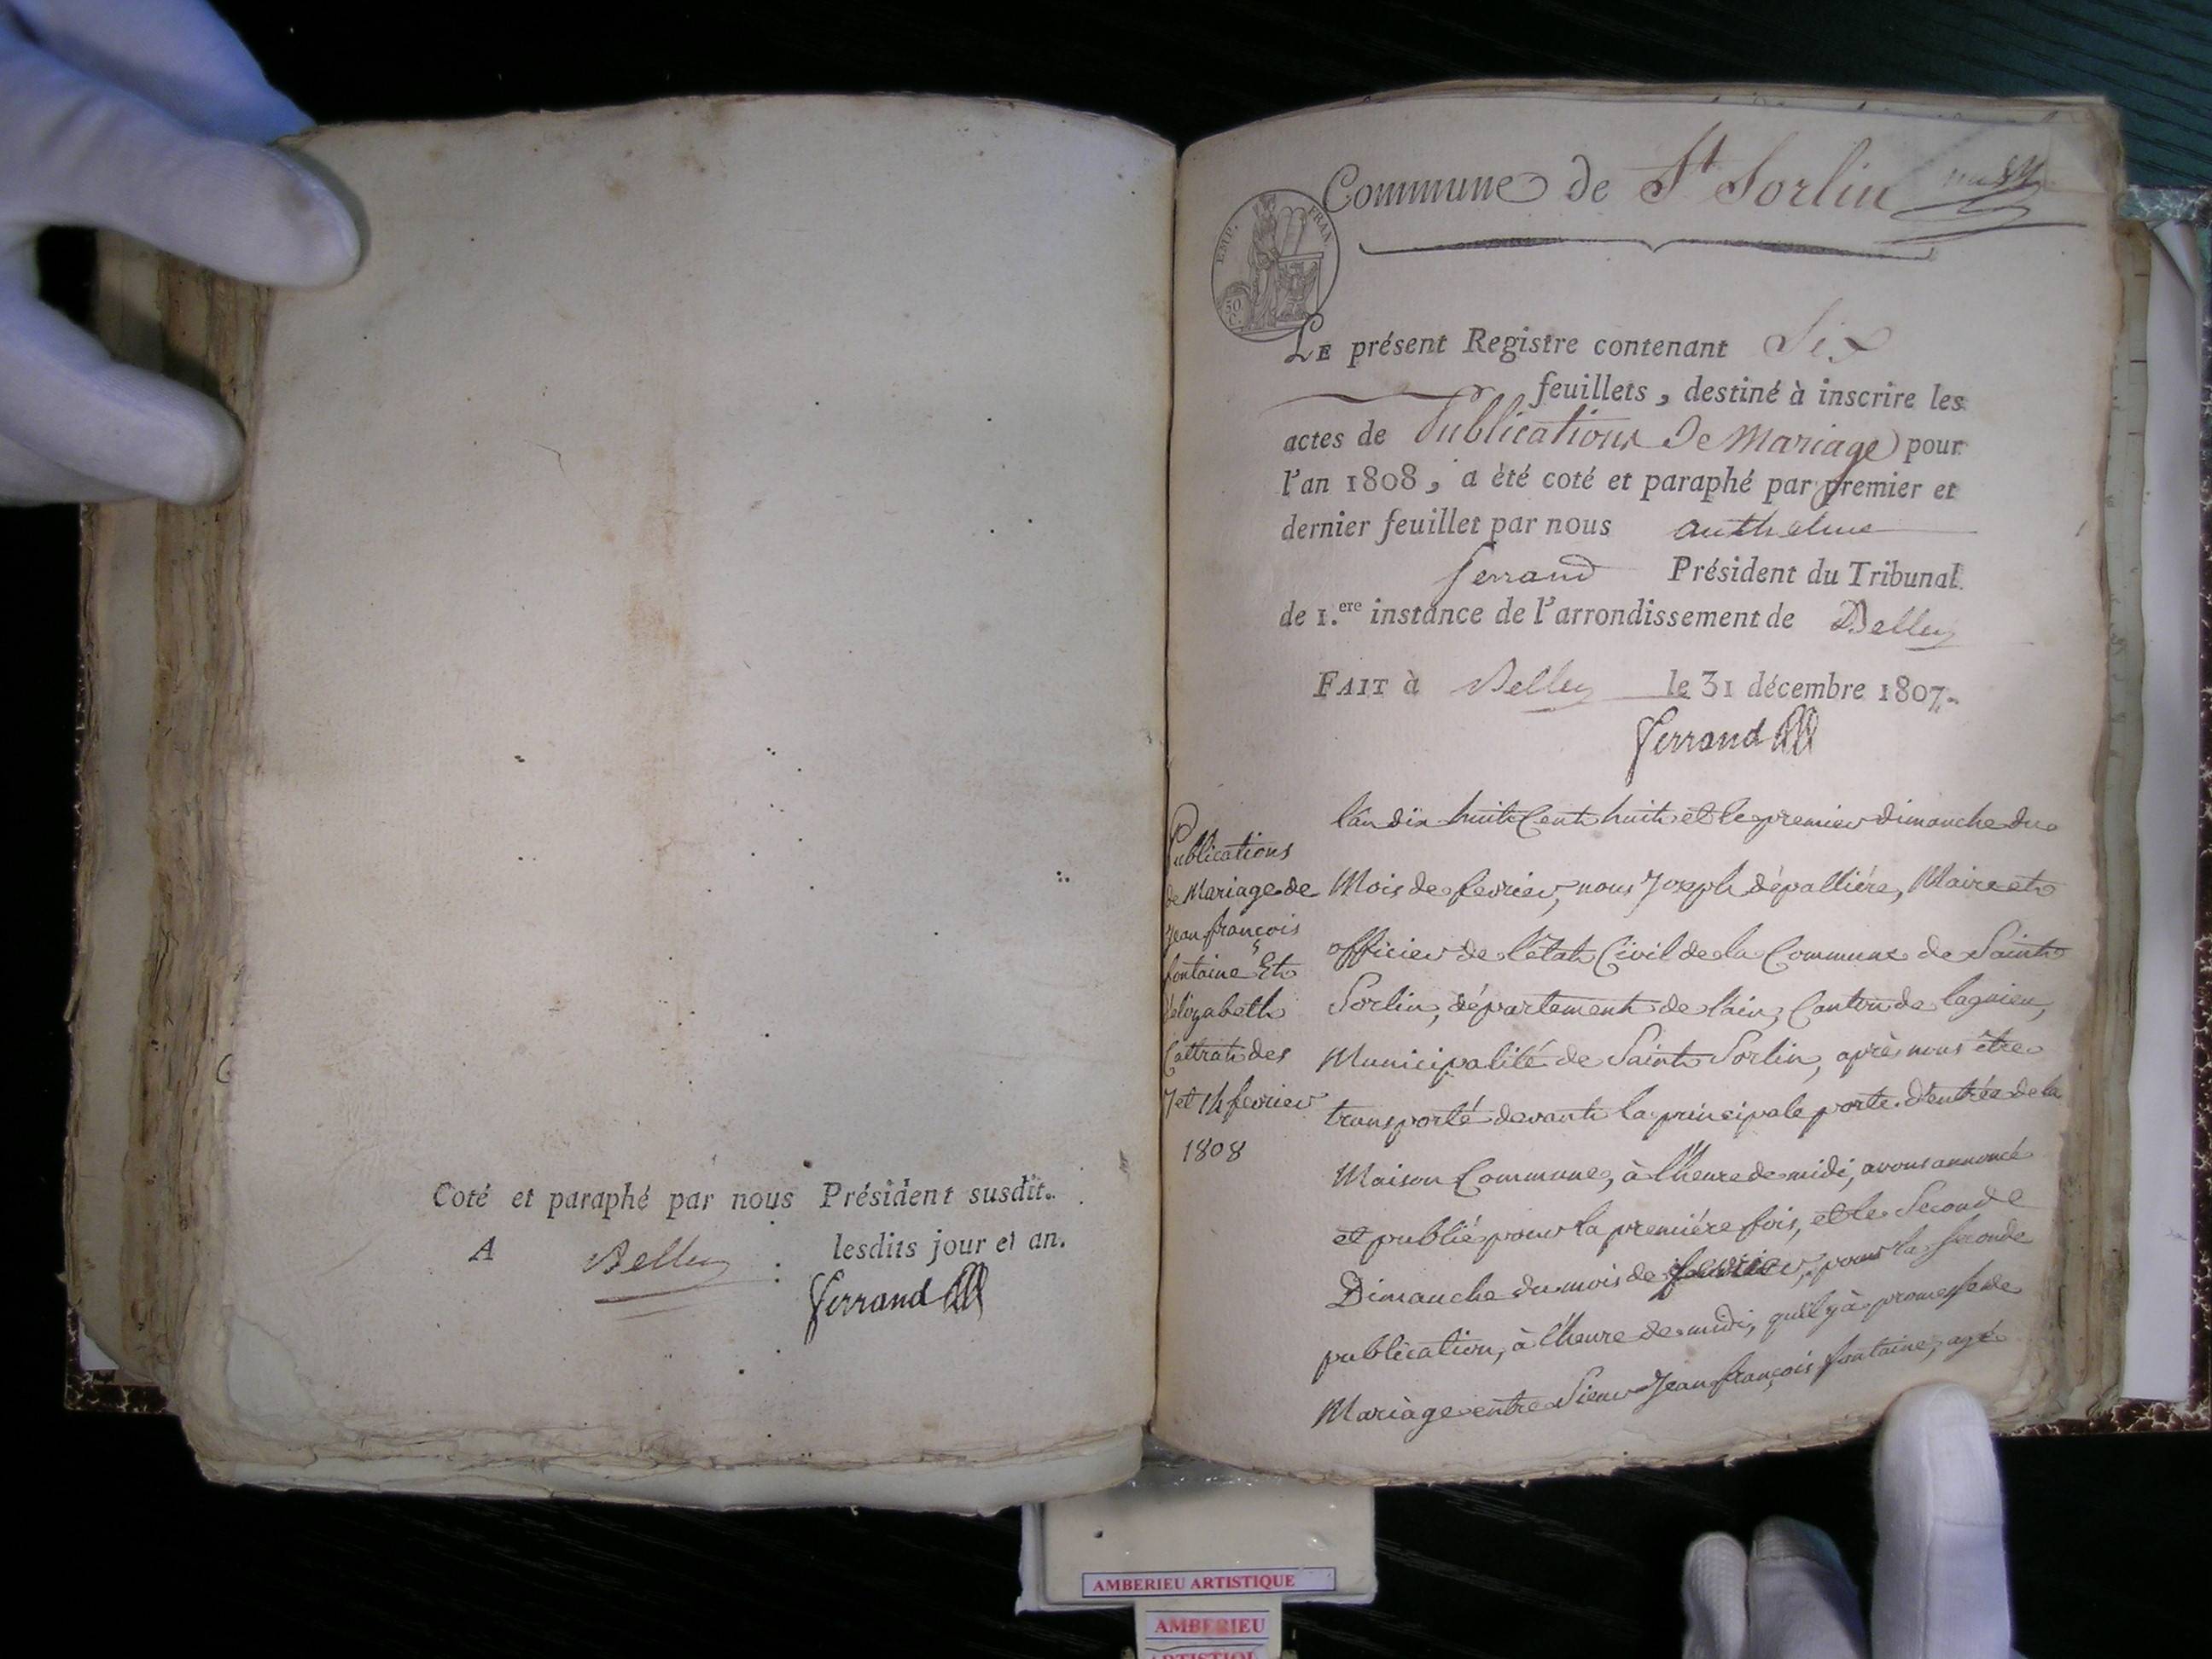 Coté et paraphé par nous Président susdit.
A Belley lesdits jour et an.
Ferrand
Commune de St Sorlin
EMP. FRAN.
50 C.
LE présent Registre contenant Six
feuillets, destiné à inscrire les
actes de Publications De Mariage pour
l'an 1808, a èté coté et paraphé par premier et
dernier feuillet par nous anthelme
ferrand Président du Tribunal
de 1.ere instance de l'arrondissement de Belley
FAIT à Belley le 31 décembre 1807.
Ferrand
Publications
de Mariage de
Jean françois
fontaine Et
d'élizabeth
Cattrat des
7 et 14 fevrier
1808
l'an dix huit Cent huit et le premier dimanche du
Mois de fevrier, nous Joseph dépallière, Maire et
officier de l'état Civil de la Commune de Saint
Sorlin, département de l'ain, Canton de lagnieu,
Municipalité de Saint Sorlin, après nous être
transporté devant la principale porte d'entrée de la
Maison Commune, à l'heure de midi, avons annoncé
et publié pour la première fois, et le Seconde
Dimanche du mois de fevrier, pour la seconde
publication, à l'heure de midi, qu'il y à promesse de
Mariàge entre Sieur Jean françois fontaine, agé
AMBERIEU ARTISTIQUE
AMBERIEU
ARTISTIQUE